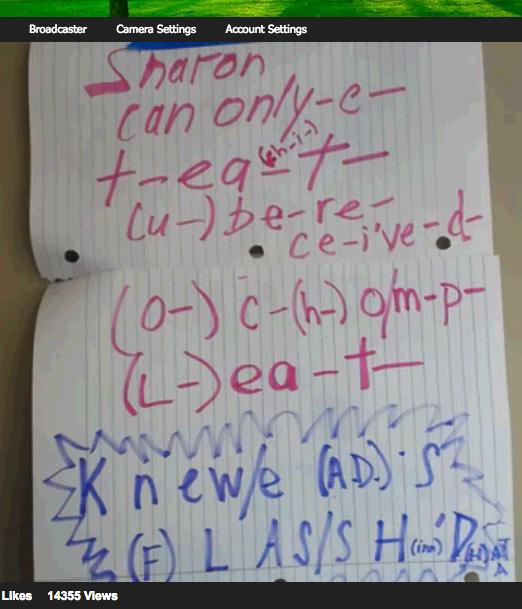 Broadcaster Camera Settings Account Settings
Sharon
can only-e-
t-ea-t-
(u-) be-re-
ce-i've-d-
(o-) c-(h-) o/m-p-
(L-) ea-t-
K n e w/e (A.D.)'S
(F) L A S/S H (inn)'D
Likes 14355 Views